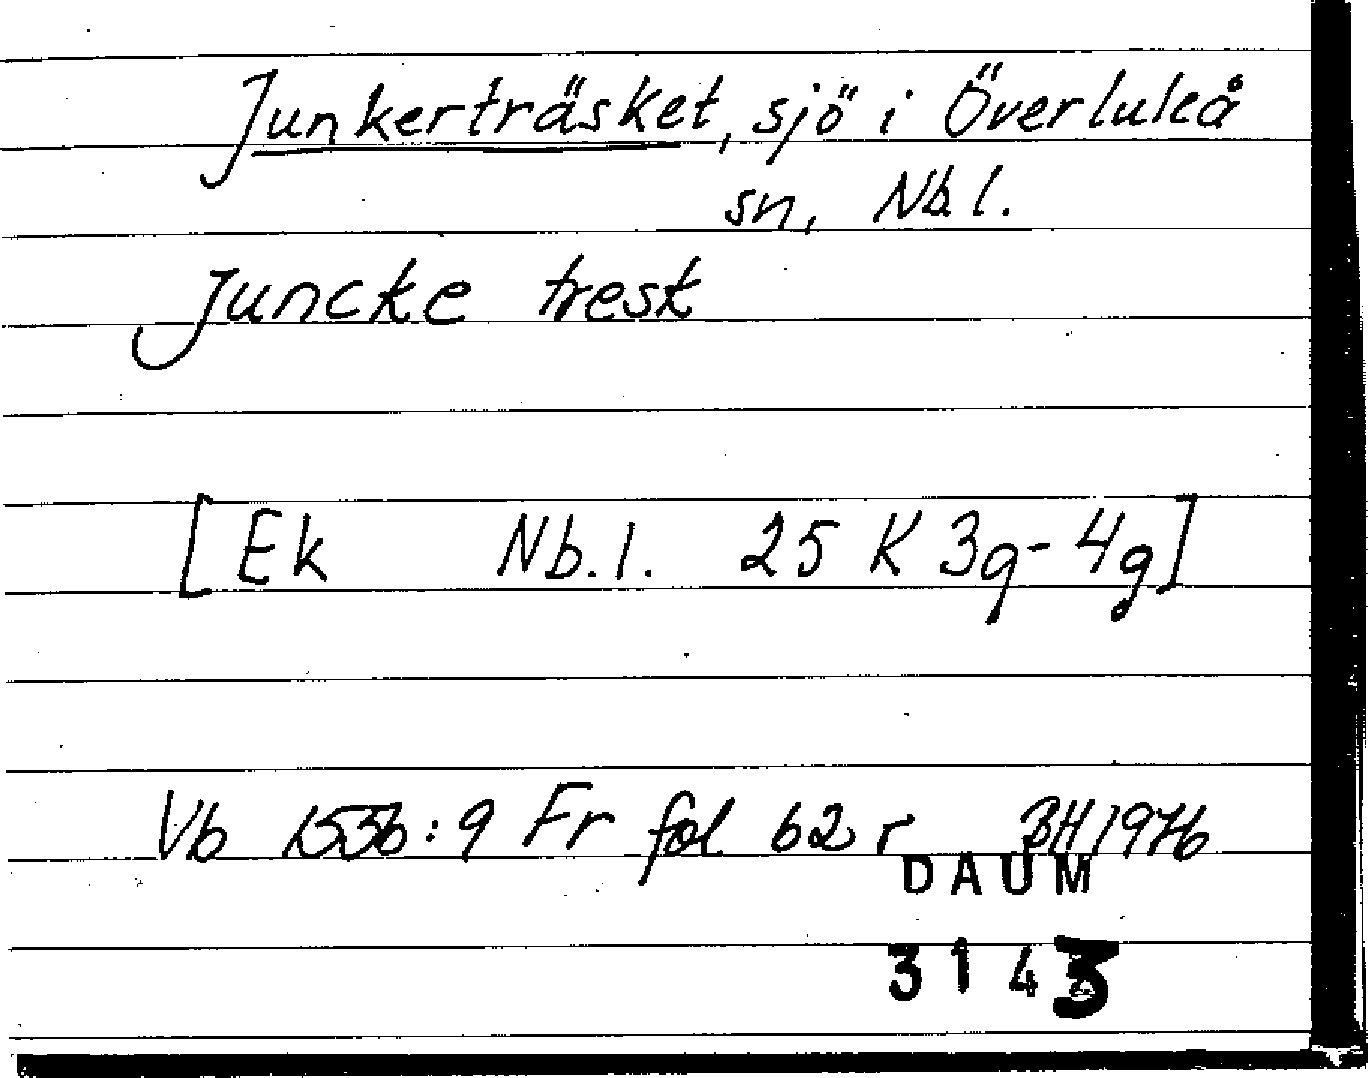 Junkerträsket, sjö i Överluleå
sn, Nb. l.
Juncke tresk
[Ek Nb. l. 25 K 3g-4g]
Vb 1553b:9 Fr fol 62 r BH 1976
DAUM
3143